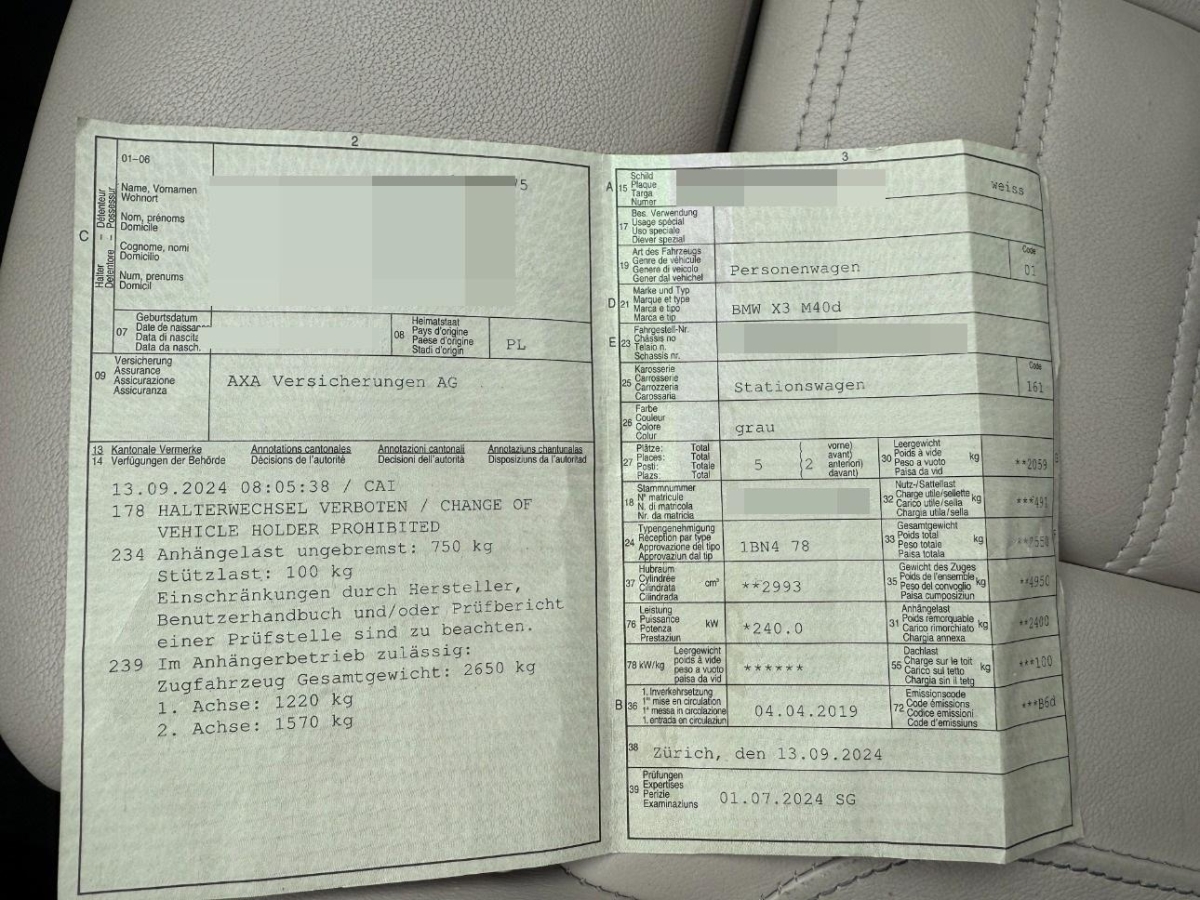 2
01-06
C
Halter – Détenteur
Detentore – Possessur
Name, Vornamen
Wohnort
Nom, prénoms
Domicile
Cognome, nomi
Domicilio
Num, prenums
Domicil
5
07
Geburtsdatum
Date de naissan
Data di nascita
Data da nasch.
08
Heimatstaat
Pays d'origine
Paese d'origine
Stadi d'origin
PL
09
Versicherung
Assurance
Assicurazione
Assicuranza
AXA Versicherungen AG
13 Kantonale Vermerke Annotations cantonales Annotazioni cantonali Annotaziuns chantunalas
14 Verfügungen der Behörde Décisions de l'autorité Decisioni dell'autorità Disposiziuns da l'autoritad
13.09.2024 08:05:38 / CAI
178 HALTERWECHSEL VERBOTEN / CHANGE OF
VEHICLE HOLDER PROHIBITED
234 Anhängelast ungebremst: 750 kg
Stützlast: 100 kg
Einschränkungen durch Hersteller,
Benutzerhandbuch und/oder Prüfbericht
einer Prüfstelle sind zu beachten.
239 Im Anhängerbetrieb zulässig:
Zugfahrzeug Gesamtgewicht: 2650 kg
1. Achse: 1220 kg
2. Achse: 1570 kg
3
A 15
Schild
Plaque
Targa
Numer
weiss
17
Bes. Verwendung
Usage spécial
Uso speciale
Diever spezial
19
Art des Fahrzeugs
Genre de véhicule
Genere di veicolo
Gener dal vehichel
Personenwagen
Code
01
D 21
Marke und Typ
Marque et type
Marca e tipo
Marca e tip
BMW X3 M40d
E 23
Fahrgestell-Nr.
Châssis no
Telaio n.
Schassis nr.
25
Karosserie
Carrosserie
Carrozzeria
Carossaria
Stationswagen
Code
161
26
Farbe
Couleur
Colore
Colur
grau
27
Plätze: Total
Places: Total
Posti: Totale
Plazs: Total
5
2
vorne)
avant)
anteriori)
davant)
30
Leergewicht
Poids à vide
Peso a vuoto
Paisa da vid
kg
**2059
18
Stammnummer
N° matricule
N. di matricola
Nr. da matricla
32
Nutz-/Sattellast
Charge utile/sellette
Carico utile/sella
Chargia utila/sella
kg
***491
24
Typengenehmigung
Réception par type
Approvazione del tipo
Approvaziun dal tip
1BN4 78
33
Gesamtgewicht
Poids total
Peso totale
Paisa totala
kg
**2550
37
Hubraum
Cylindrée
Cilindrata
Cilindrada
cm³
**2993
35
Gewicht des Zuges
Poids de l'ensemble
Peso del convoglio
Paisa cumposiziun
kg
**4950
76
Leistung
Puissance
Potenza
Prestaziun
kW
*240.0
31
Anhängelast
Poids remorquable
Carico rimorchiato
Chargia annexa
kg
**2400
78 kW/kg
Leergewicht
poids à vide
peso a vuoto
paisa da vid
******
55
Dachlast
Charge sur le toit
Carico sul tetto
Chargia sin il tetg
kg
***100
B 36
1. Inverkehrsetzung
1re mise en circulation
1a messa in circolazione
1. entrada en circulaziun
04.04.2019
72
Emissionscode
Code émissions
Codice emissioni
Code d'emissiuns
***B6d
38
Zürich, den 13.09.2024
39
Prüfungen
Expertises
Perizie
Examinaziuns
01.07.2024 SG